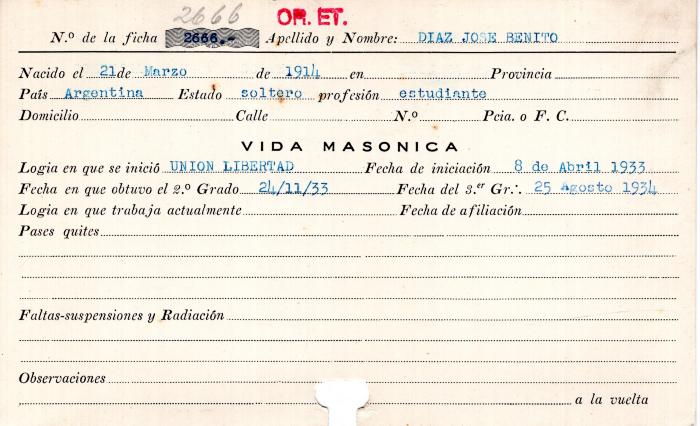 2666 OR. ET.
N.º de la ficha 2666.- Apellido y Nombre: DIAZ JOSE BENITO
Nacido el 21 de Marzo de 1914 en Provincia
País Argentina Estado soltero profesión estudiante
Domicilio Calle N.º Pcia. o F. C.
VIDA MASONICA
Logia en que se inició UNION LIBERTAD Fecha de iniciación 8 de Abril 1933
Fecha en que obtuvo el 2.º Grado 24/11/33 Fecha del 3.er Gr∴ 25 Agosto 1934
Logia en que trabaja actualmente Fecha de afiliación
Pases quites
Faltas-suspensiones y Radiación
Observaciones
a la vuelta